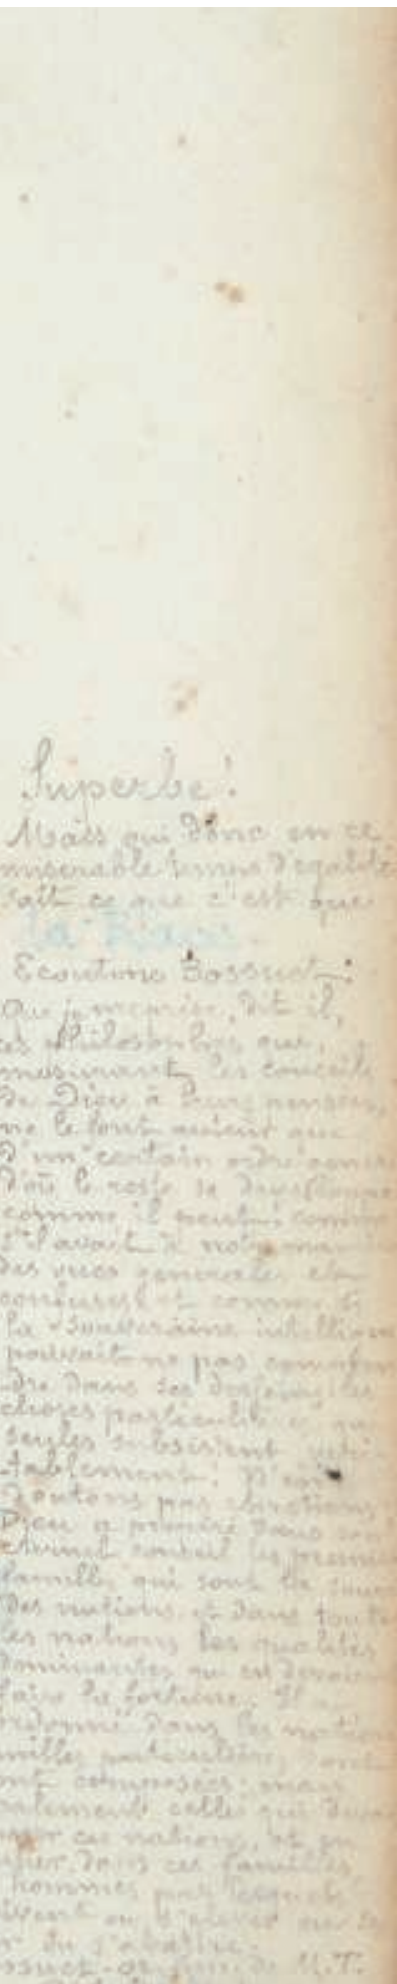 Superbe!
Mais qui donc en ce
miserable temps d'egalité
sait ce que c'est que
la Race.
Ecoutons Bossuet:
Que je meprise, dit il,
ces philosophes qui,
mesurant les conseils
de Dieu à leurs pensées,
ne le font auteur que
d'un certain ordre géné
d'où le reste se developpe
comme il peut! comme
s'il avait à notre mani
des vues generales et
confuses et comme si
la souveraine intelligen
pouvait ne pas compren
dre dans ses desseins les
choses particulières qui
seules subsistent veri
tablement! N'en
doutons pas chretiens
Dieu a préparé dans son
eternel conseil les premie
familles qui sont la source
des nations et dans toute
les nations les qualités
dominantes qui en devaient
faire la fortune. Il a
ordonné dans les nation
milles particulières dont
ont composées; mais
palement celles qui devai
ces nations, et en
dans ces familles
hommes par lesquels
ou s'élever ou se
ou s'abattre.
ssuet- or. fun. de M.T.